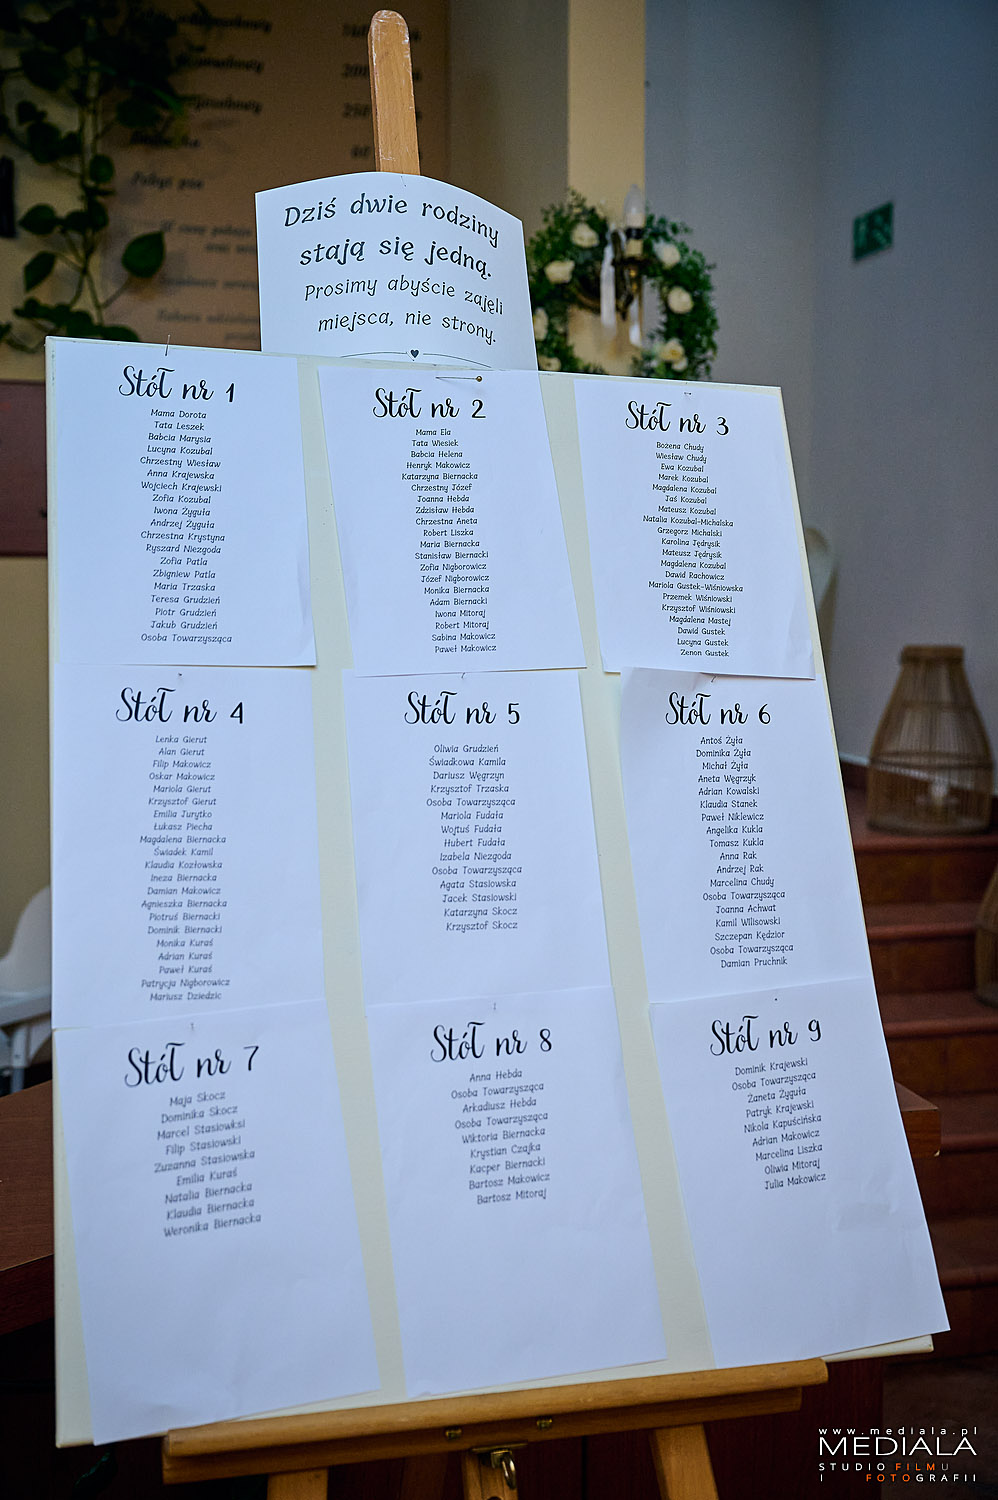 Dziś dwie rodziny
stają się jedną.
Prosimy abyście zajęli
miejsca, nie strony.
Stół nr 1
Mama Dorota
Tata Leszek
Babcia Marysia
Lucyna Kozubal
Chrzestny Wiesław
Anna Krajewska
Wojciech Krajewski
Zofia Kozubal
Iwona Żyguła
Andrzej Żyguła
Chrzestna Krystyna
Ryszard Niezgoda
Zofia Patla
Zbigniew Patla
Maria Trzaska
Teresa Grudzień
Piotr Grudzień
Jakub Grudzień
Osoba Towarzysząca
Stół nr 2
Mama Ela
Tata Wiesiek
Babcia Helena
Henryk Makowicz
Katarzyna Biernacka
Chrzestny Józef
Joanna Hebda
Zdzisław Hebda
Chrzestna Aneta
Robert Liszka
Maria Biernacka
Stanisław Biernacki
Zofia Nigborowicz
Józef Nigborowicz
Monika Biernacka
Adam Biernacki
Iwona Mitoraj
Robert Mitoraj
Sabina Makowicz
Paweł Makowicz
Stół nr 3
Bożena Chudy
Wiesław Chudy
Ewa Kozubal
Marek Kozubal
Magdalena Kozubal
Jaś Kozubal
Mateusz Kozubal
Natalia Kozubal-Michalska
Grzegorz Michalski
Karolina Jędrysik
Mateusz Jędrysik
Magdalena Kozubal
Dawid Rachowicz
Mariola Gustek-Wiśniowska
Przemek Wiśniowski
Krzysztof Wiśniowski
Magdalena Mastej
Dawid Gustek
Lucyna Gustek
Zenon Gustek
Stół nr 4
Lenka Gierut
Alan Gierut
Filip Makowicz
Oskar Makowicz
Mariola Gierut
Krzysztof Gierut
Emilia Jurytko
Łukasz Piecha
Magdalena Biernacka
Świadek Kamil
Klaudia Kozłowska
Ineza Biernacka
Damian Makowicz
Agnieszka Biernacka
Piotruś Biernacki
Dominik Biernacki
Monika Kuraś
Adrian Kuraś
Paweł Kuraś
Patrycja Nigborowicz
Mariusz Dziedzic
Stół nr 5
Oliwia Grudzień
Świadkowa Kamila
Dariusz Węgrzyn
Krzysztof Trzaska
Osoba Towarzysząca
Mariola Fudała
Wojtuś Fudała
Hubert Fudała
Izabela Niezgoda
Osoba Towarzysząca
Agata Stasiowska
Jacek Stasiowski
Katarzyna Skocz
Krzysztof Skocz
Stół nr 6
Antoś Żyła
Dominika Żyła
Michał Żyła
Aneta Węgrzyk
Adrian Kowalski
Klaudia Stanek
Paweł Niklewicz
Angelika Kukla
Tomasz Kukla
Anna Rak
Andrzej Rak
Marcelina Chudy
Osoba Towarzysząca
Joanna Achwat
Kamil Wilisowski
Szczepan Kędzior
Osoba Towarzysząca
Damian Pruchnik
Stół nr 7
Maja Skocz
Dominika Skocz
Marcel Stasiowksi
Filip Stasiowski
Zuzanna Stasiowska
Emilia Kuraś
Natalia Biernacka
Klaudia Biernacka
Weronika Biernacka
Stół nr 8
Anna Hebda
Osoba Towarzysząca
Arkadiusz Hebda
Osoba Towarzysząca
Wiktoria Biernacka
Krystian Czajka
Kacper Biernacki
Bartosz Makowicz
Bartosz Mitoraj
Stół nr 9
Dominik Krajewski
Osoba Towarzysząca
Żaneta Żyguła
Patryk Krajewski
Nikola Kapuścińska
Adrian Makowicz
Marcelina Liszka
Oliwia Mitoraj
Julia Makowicz
www.mediala.pl
MEDIALA
STUDIO FILMU
I FOTOGRAFII